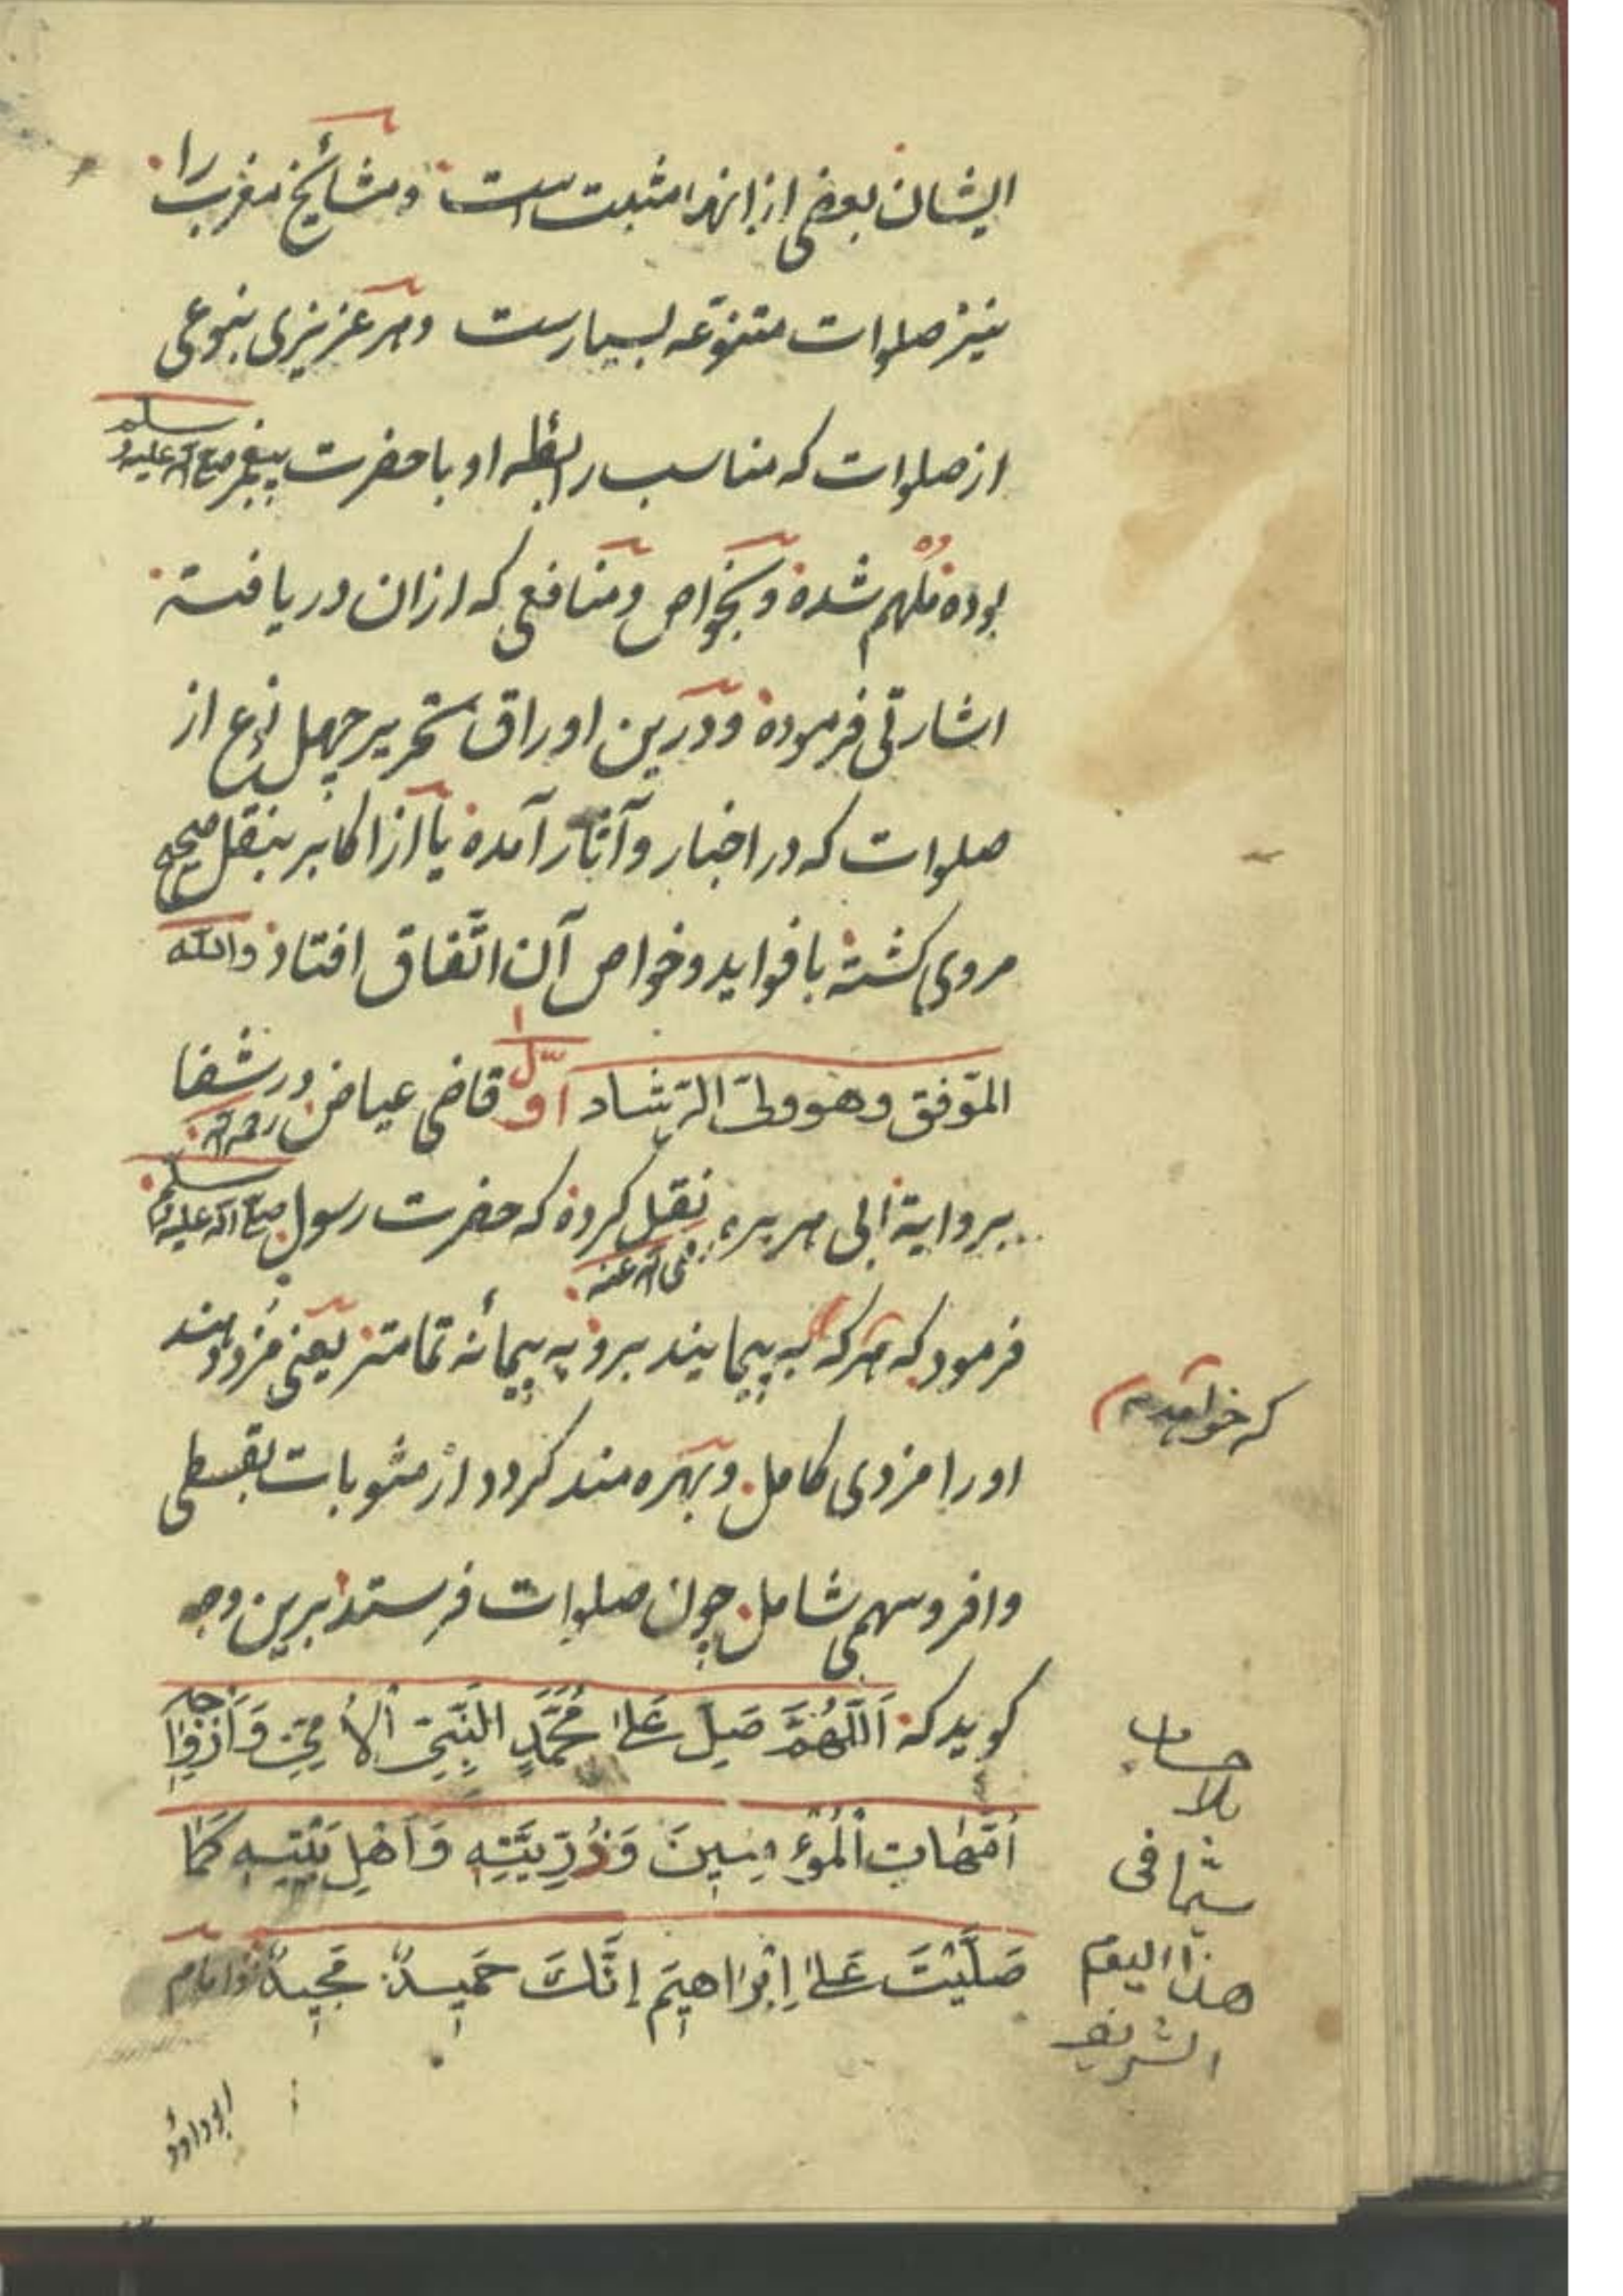 ایشان بعضی از انها مثبت است و مشایخ مغرب را
نیز صلوات متنوّعه بسیارست و هر عزیزی بنوعی
از صلوات که مناسب رابطهٔ او با حضرت پیغمبر صلی الله علیه و سلم
بوده مُلهم شده و بخواص و منافعی که از ان دریافته
اشارتی فرموده و درین اوراق تحریر چهل نوع از
صلوات که در اخبار و آثار آمده یا از اکابر بنقل صحیح
مروی کشته با فواید و خواص آن اتّفاق افتاد والله
الموّفق وهو ولیّ الرّشاد اوّل قاضی عیاض رحمه الله در شفا
بروایة ابی هریره رضی الله عنه نقل کرده که حضرت رسول صلی الله علیه و سلم
فرمود که هر که به پیمایند برو به پیمانهٔ تمامتر یعنی مزد دهند
که خواهد
اورا مزدی کامل و بهره مند کردد از مثوبات بقسطی
وافر و سهمی شامل چون صلوات فرستد برین وجه
کوید که اَللّهُمَّ صَلِّ عَلیٰ مُحَمَّدٍ النَّبِیِّ الْاُمِّیِّ وَاَزْوَاجِهِ
اُمَّهاتِ الْمُؤْمِنِینَ وَذُرِّیَّتِهِ وَاَهْلِ بَیْتِهِ کَمَا
صَلَّیْتَ عَلیٰ اِبْرَاهِیمَ اِنَّكَ حَمِیدٌ مَجِیدٌ و امام
بلا حساب
سیما فی
هذا الیوم
الشریف
ابو داود